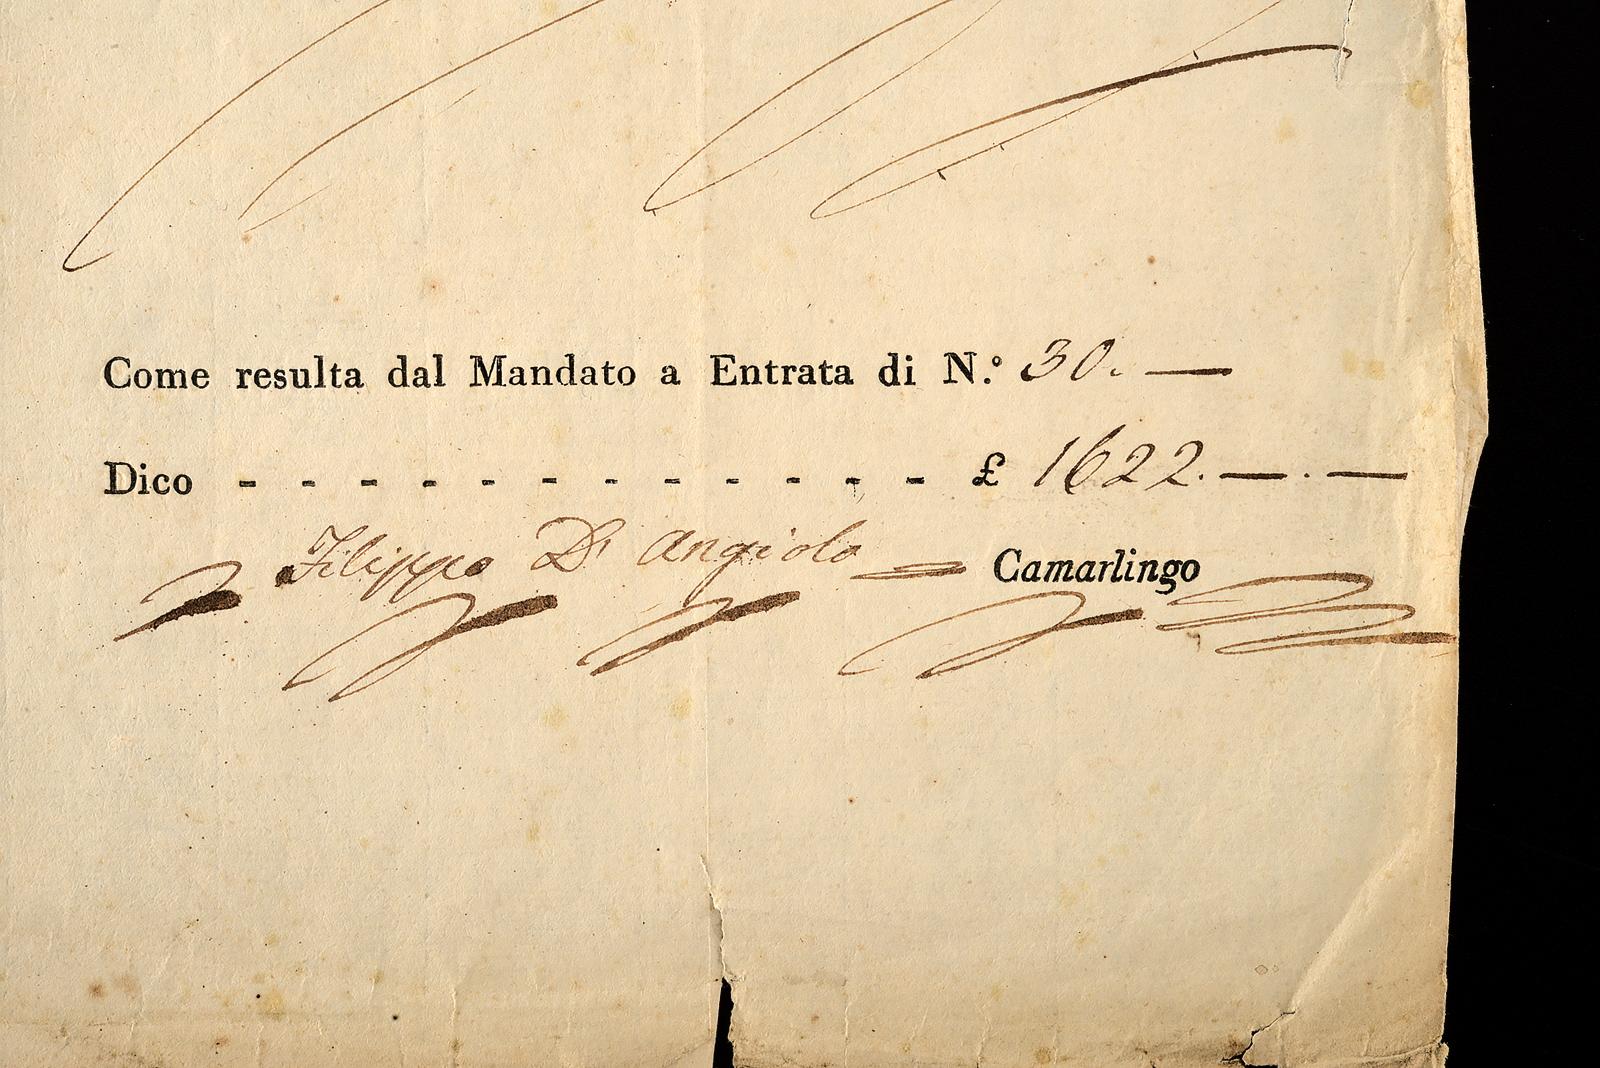 Come resulta dal Mandato a Entrata di N.° 30. —
Dico - - - - - - - - - - - - £ 1622. — . —
Filippo D' Angiolo = Camarlingo